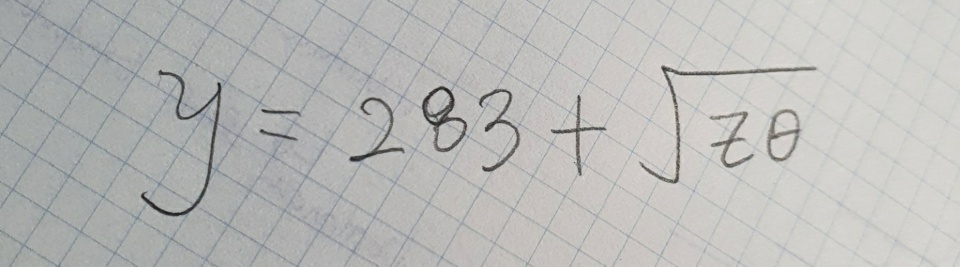 y = 283 + √zθ